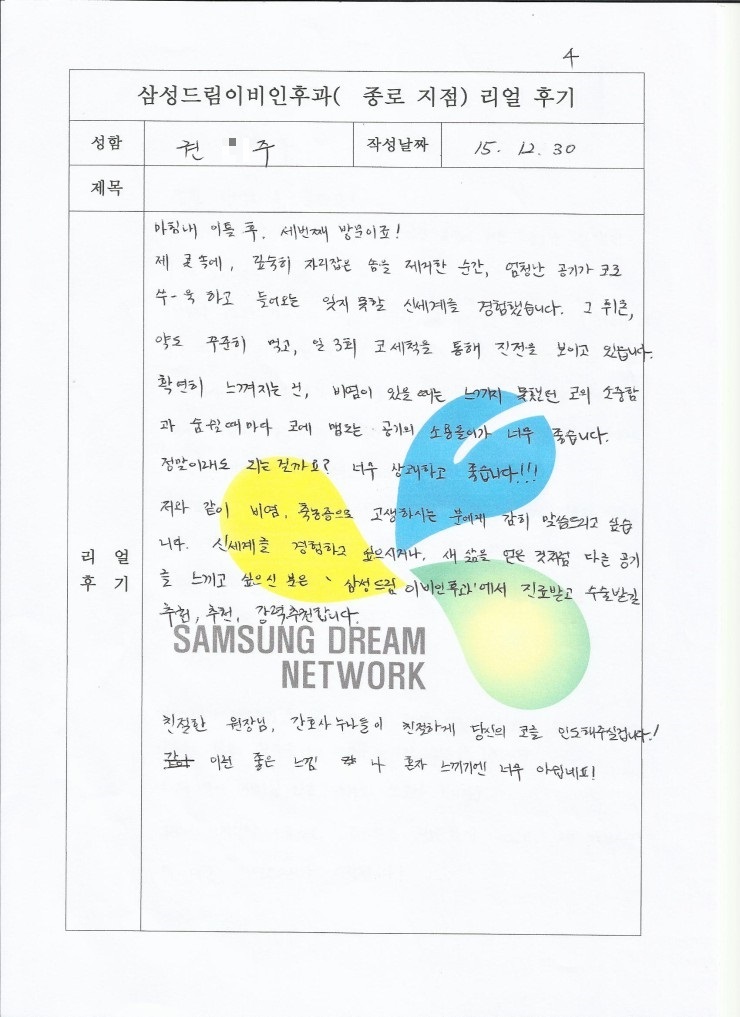 4
삼성드림이비인후과( 종로 지점) 리얼 후기
성함 권 주 작성날짜 15. 12. 30
제목
리 얼
후 기
마침내 이틀 후, 세번째 방문이죠!
제 콧속에, 깊숙히 자리잡은 솜을 제거한 순간, 엄청난 공기가 코로
쑤-욱 하고 들어오는 잊지 못할 신세계를 경험했습니다. 그 뒤론,
약도 꾸준히 먹고, 일 3회 코세척을 통해 진전을 보이고 있습니다.
확연히 느껴지는 건, 비염이 있을 때는 느끼지 못했던 코의 소중함
과 숨쉴때마다 코에 맴도는 공기의 소용돌이가 너무 좋습니다.
정말이래도 되는걸까요? 너무 상쾌하고 좋습니다!!!
저와 같이 비염, 축농증으로 고생하시는 분에게 감히 말씀드리고 싶습
니다. 신세계를 경험하고 싶으시거나, 새 삶을 얻은 것처럼 다른 공기
를 느끼고 싶으신 분은 '삼성드림이비인후과'에서 진료받고 수술받길
추천, 추천, 강력추천합니다.
SAMSUNG DREAM
NETWORK
친절한 원장님, 간호사누나들이 친절하게 당신의 코를 인도해주실겁니다!
이런 좋은 느낌 나 혼자 느끼기엔 너무 아쉽네요!